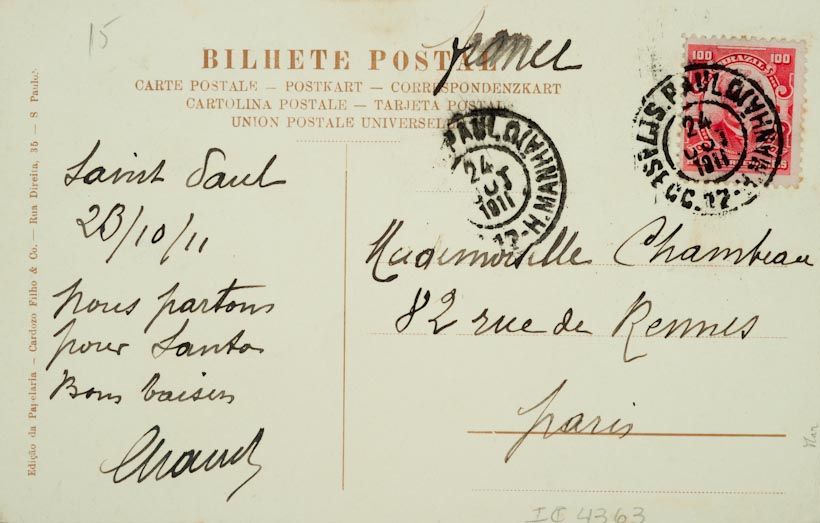 15
BILHETE POSTAL
france
CARTE POSTALE — POSTKART — CORRESPONDENZKART
CARTOLINA POSTALE — TARJETA POSTAL
UNION POSTALE UNIVERSELLE
100 BRAZIL 100
S. PAULO (MANHÃ)
24
OUT
1911
PAULO (MANHÃ)
24
OUT
1911
Saint Paul
23/10/11
Nous partons
pour Santos
Bons baisers
Mademoiselle Chambeau
82 rue de Rennes
Paris
Edição da Papelaria — Cardozo Filho & Co. — Rua Direita, 35 — S. Paulo.
IC 4363